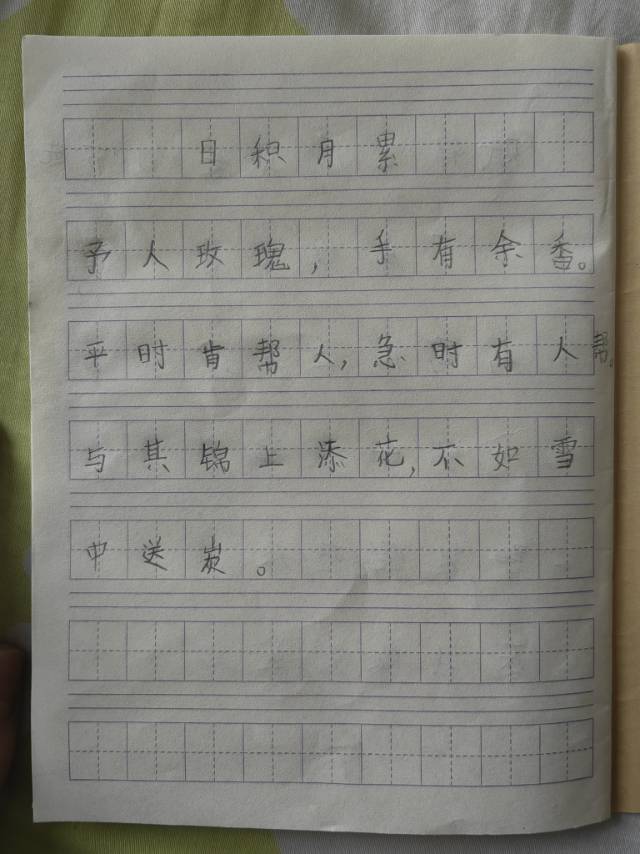 日积月累
予人玫瑰，手有余香。
平时肯帮人，急时有人帮。
与其锦上添花，不如雪
中送炭。